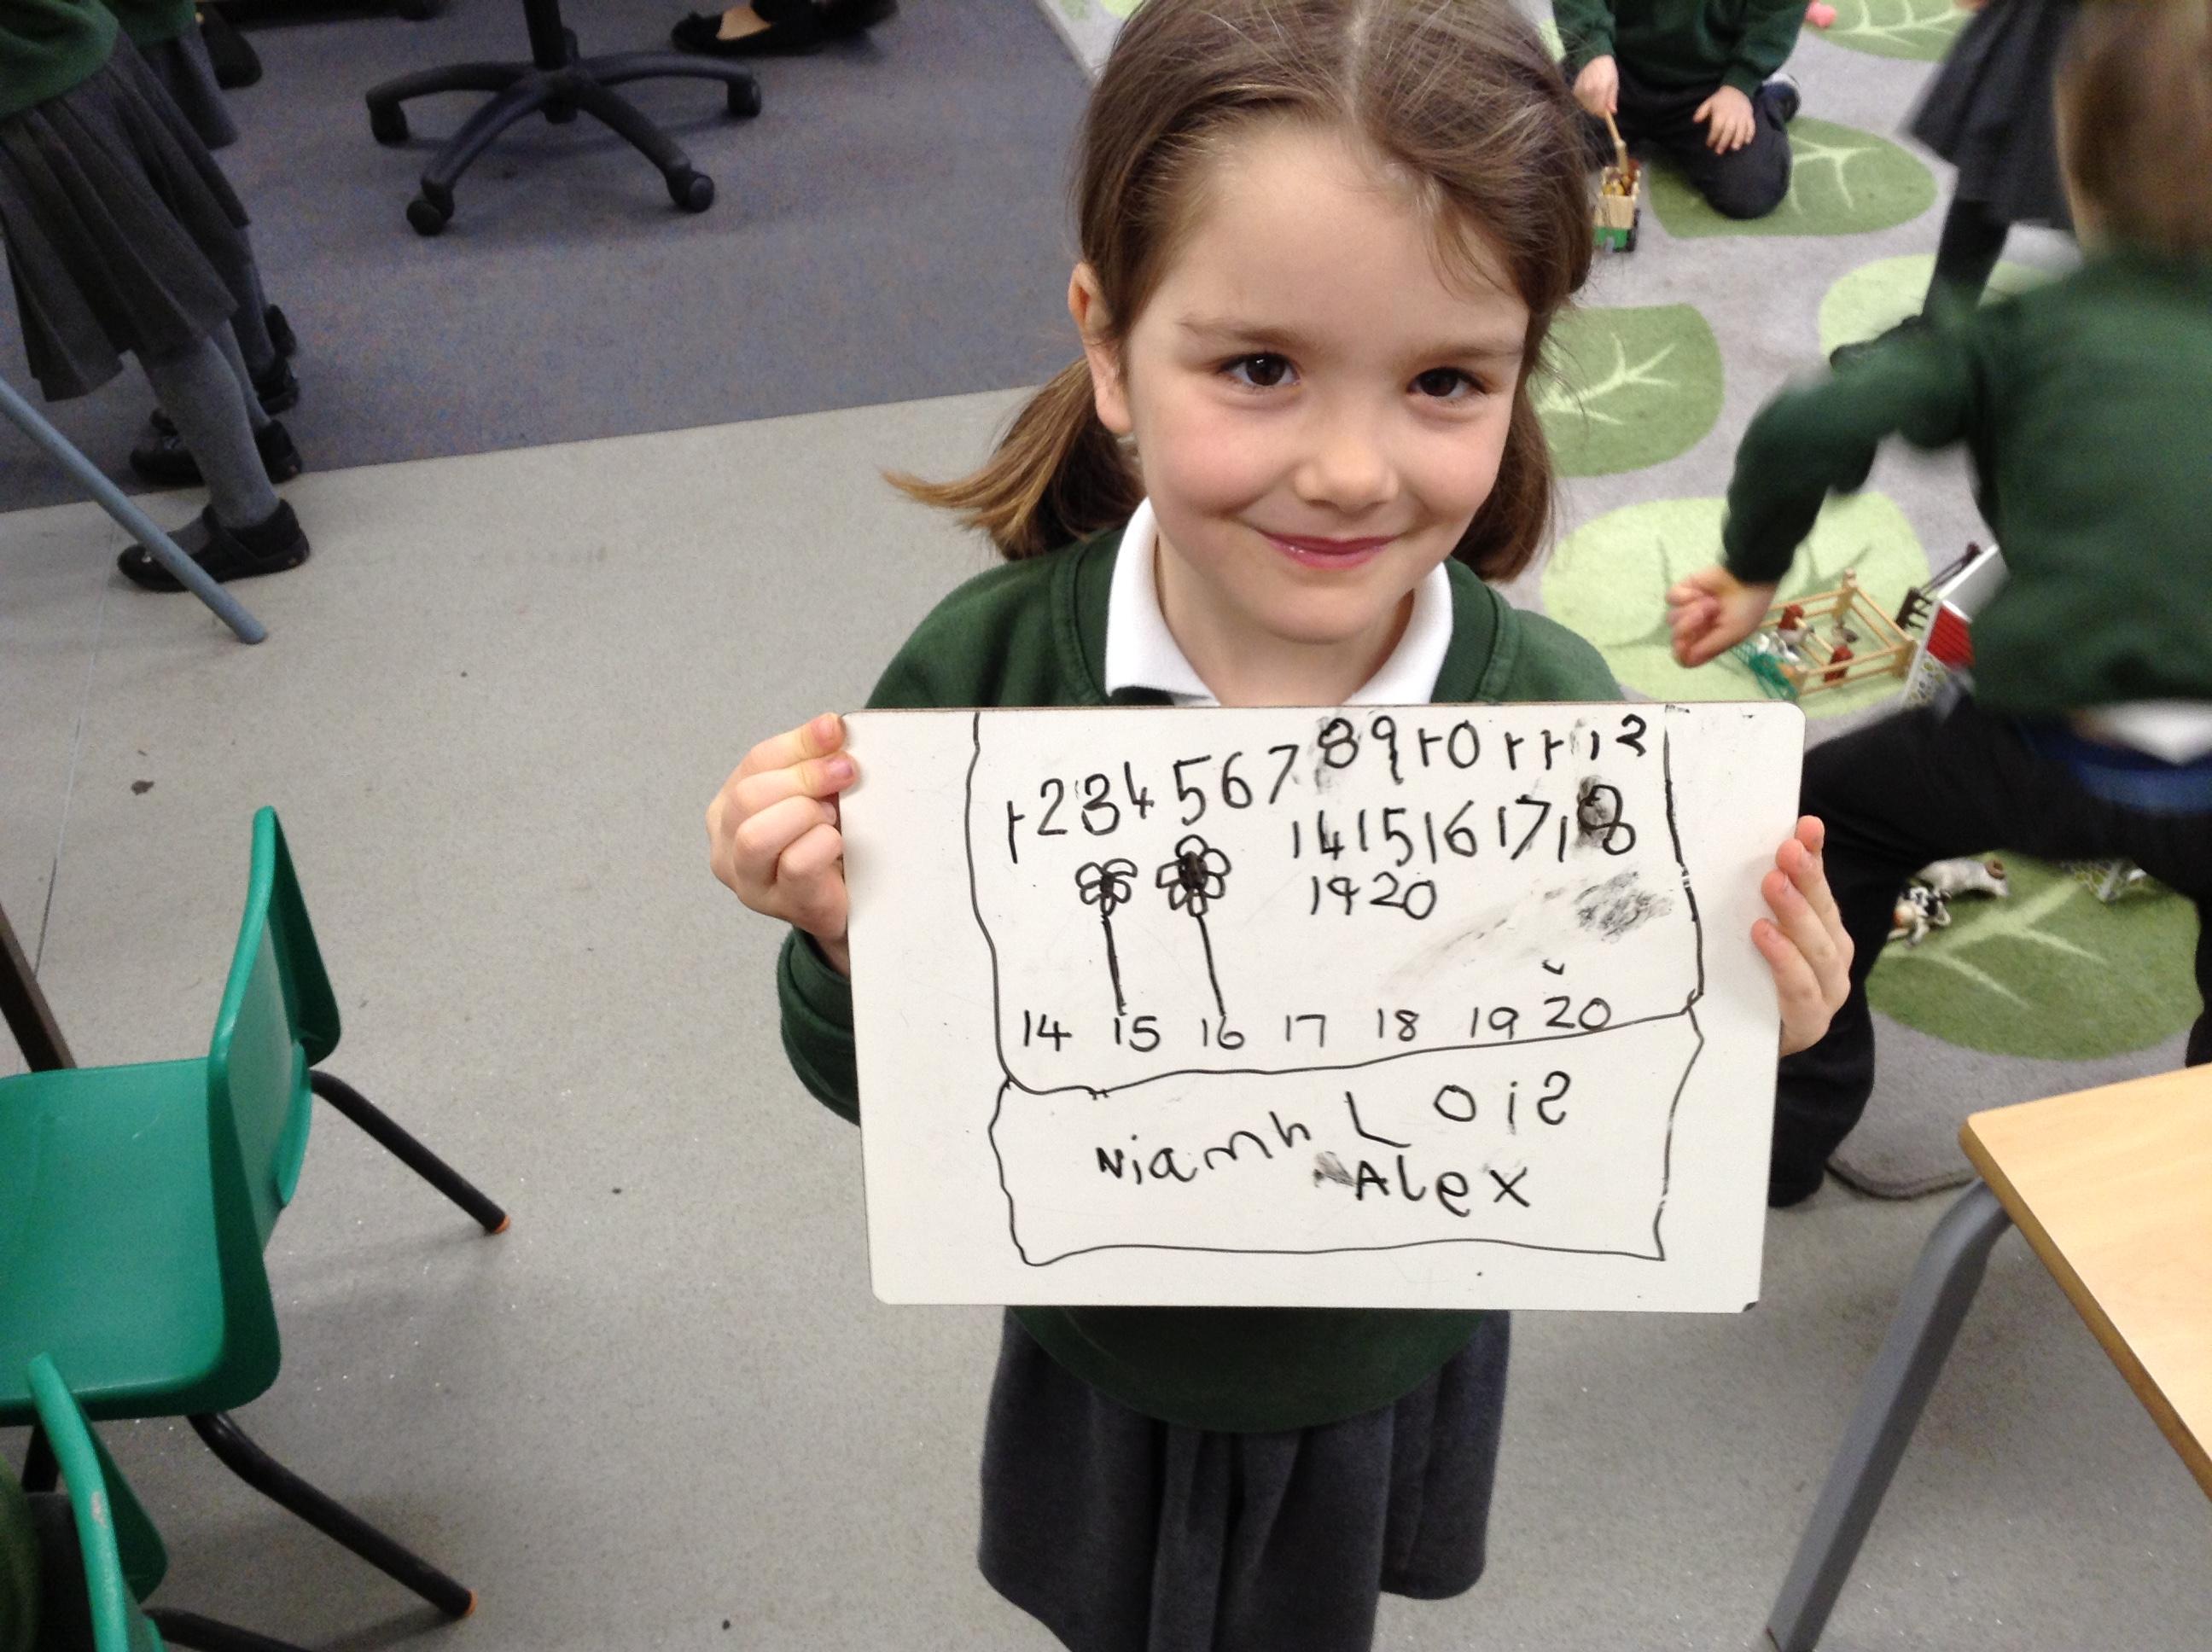 1 2 3 4 5 6 7 8 9 10 11 12
14 15 16 17 18
19 20
14 15 16 17 18 19 20
Niamh Lois
Alex